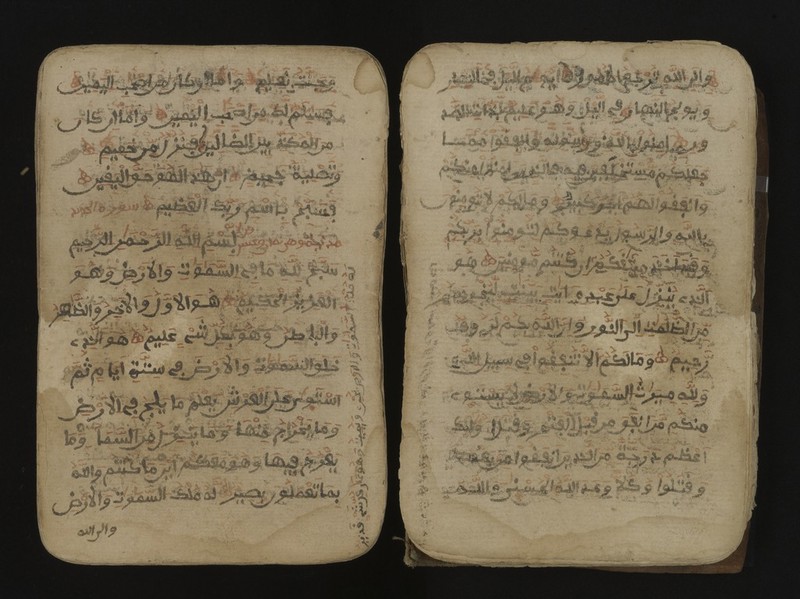 وجنت نعيم واما ان كان من اصحب اليمين
فسلم لك من اصحب اليمين واما ان كان
من المكذبين الضالين فنزل من حميم
وتصلية جحيم ان هذا لهو حق اليقين
فسبح باسم ربك العظيم سورة الحديد
مدنية وهى تسع وعشرون بسم الله الرحمن الرحيم
سبح لله ما فى السموت والارض وهو
العزيز الحكيم هو الاول والاخر والظاهر
والباطن وهو بكل شى عليم هو الذى
خلق السموت والارض فى ستة ايام ثم
استوى على العرش يعلم ما يلج فى الارض
وما يخرج منها وما ينزل من السما وما
يعرج فيها وهو معكم اين ما كنتم والله
بما تعملون بصير له ملك السموت والارض
والى الله
له ملك السموت والارض يحى ويميت وهو على كل شى قدير
والى الله ترجع الامور يولج اليل فى النهار
ويولج النهار فى اليل وهو عليم بذات الصد
ور امنوا بالله ورسوله وانفقوا مما
جعلكم مستخلفين فيه فالذين امنوا منكم
وانفقوا لهم اجر كبير وما لكم لا تومنون
بالله والرسول يدعوكم لتومنوا بربكم
وقد اخذ ميثقكم ان كنتم مومنين هو
الذى ينزل على عبده ايت بينت ليخرجكم
من الظلمت الى النور وان الله بكم لروف
رحيم وما لكم الا تنفقوا فى سبيل الله
ولله ميرث السموت والارض لا يستوى
منكم من انفق من قبل الفتح وقتل اوليك
اعظم درجة من الذين انفقوا من بعد
وقتلوا وكلا وعد الله الحسنى والله بما